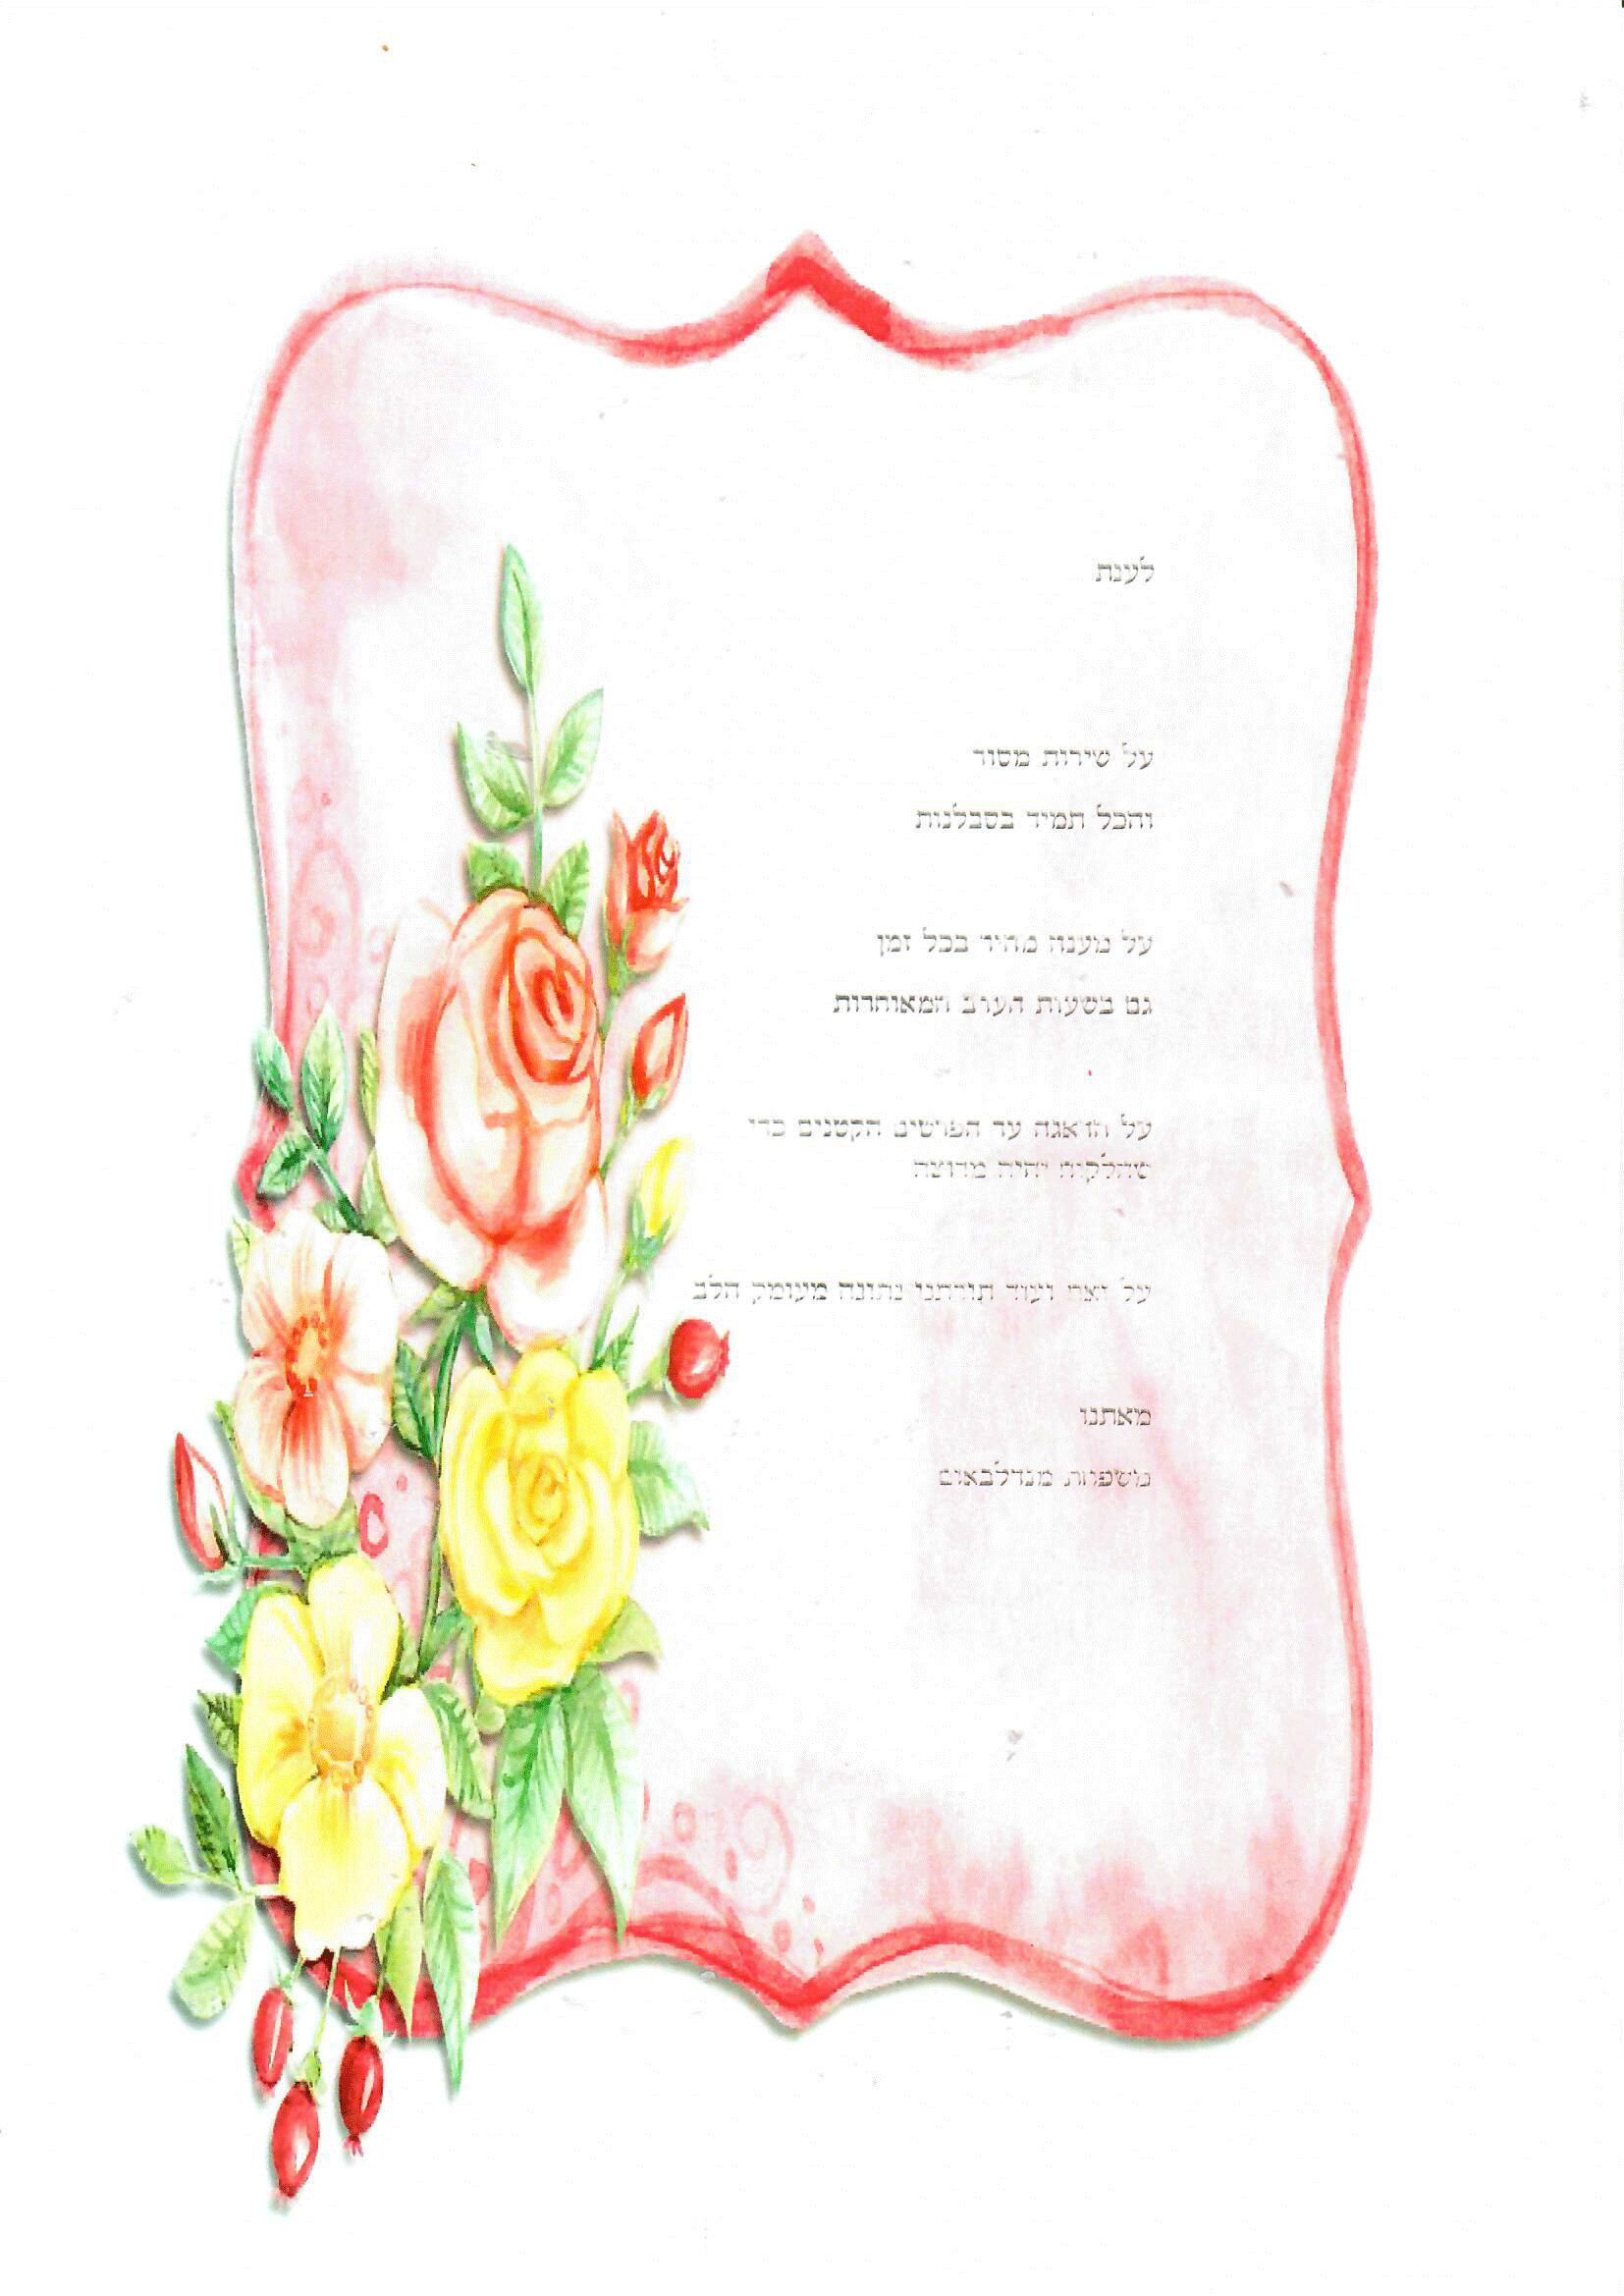 לענת
על שירות מסור
והכל תמיד בסבלנות
על מענה מהיר בכל זמן
גם בשעות הערב המאוחרות
על הדאגה עד הפרטים הקטנים כדי
שהלקוח יהיה מרוצה
על זאת ועוד תודתנו נתונה מעומק הלב
מאתנו
משפחת מנדלבאום